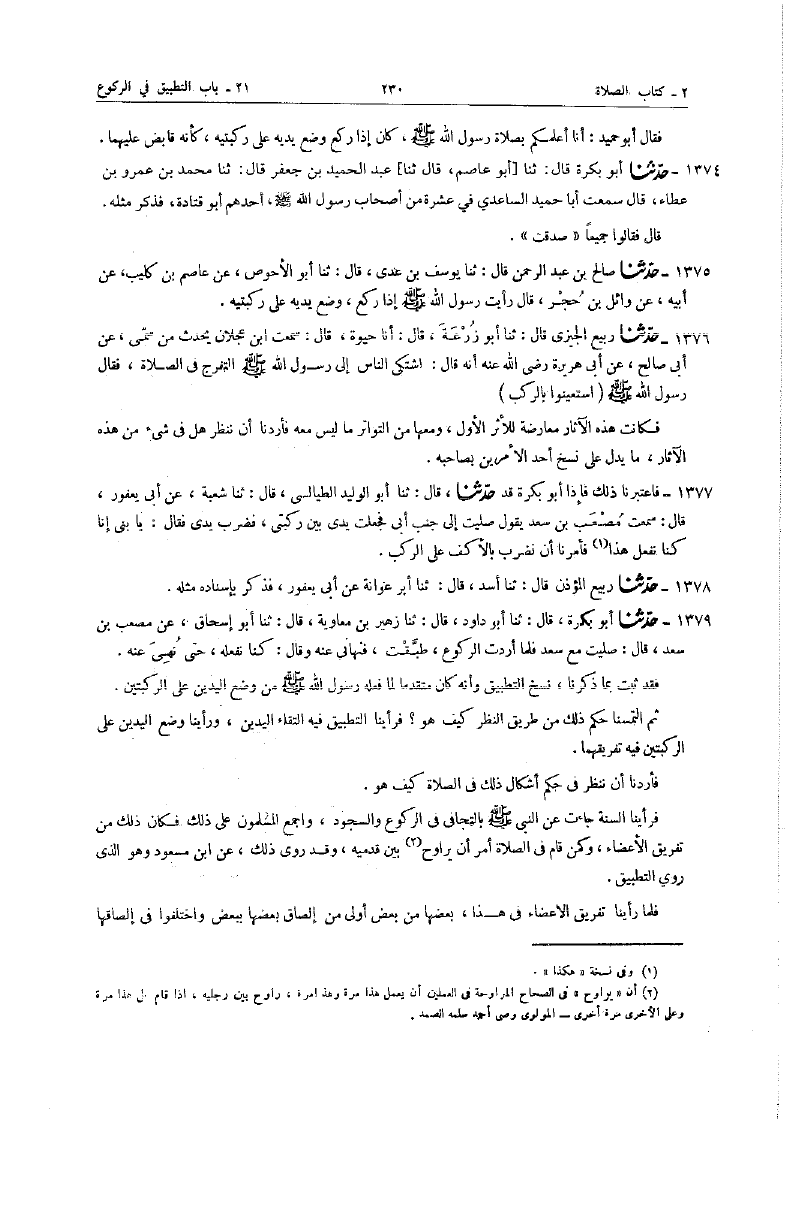 ٢ - كتاب الصلاة ٢٣٠ ٢١ - باب التطبيق في الركوع
فقال أبو حميد : أنا أعلمكم بصلاة رسول الله ﷺ ، كان إذا ركع وضع يديه على ركبتيه ، كأنه قابض عليهما .
١٣٧٤ - حدثنا أبو بكرة قال : ثنا [أبو عاصم، قال ثنا] عبد الحميد بن جعفر قال : ثنا محمد بن عمرو بن
عطاء، قال سمعت أبا حميد الساعدي في عشرة من أصحاب رسول الله ﷺ، أحدهم أبو قتادة، فذكر مثله .
قال فقالوا جميعاً « صدقت » .
١٣٧٥ - حدثنا صالح بن عبد الرحمن قال : ثنا يوسف بن عدى ، قال : ثنا أبو الأحوص ، عن عاصم بن كليب، عن
أبيه ، عن وائل بن حُجْر ، قال رأيت رسول الله ﷺ إذا ركع ، وضع يديه على ركبتيه .
١٣٧٦ - حدثنا ربيع الجيزى قال : ثنا أبو زُرْعَةَ ، قال : أنا حيوة ، قال : سمعت ابن عجلان يحدث عن سمى ، عن
أبى صالح ، عن أبى هريرة رضى الله عنه أنه قال : اشتكى الناس إلى رسول الله ﷺ التفرج فى الصلاة ، فقال
رسول الله ﷺ ( استعينوا بالركب )
فكانت هذه الآثار معارضة للأثر الأول ، ومعها من التواتر ما ليس معه فأردنا أن ننظر هل فى شىء من هذه
الآثار ، ما يدل على نسخ أحد الأمرين بصاحبه .
١٣٧٧ - فاعتبرنا ذلك فإذا أبو بكرة قد حدثنا ، قال : ثنا أبو الوليد الطيالسى ، قال : ثنا شعبة ، عن أبى يعفور ،
قال : سمعت مُصْعَبَ بن سعد يقول صليت إلى جنب أبى فجعلت يدى بين ركبتى ، فضرب يدى فقال : يا بنى إنا
كنا نفعل هذا(١) فأمرنا أن نضرب بالأكف على الركب .
١٣٧٨ - حدثنا ربيع المؤذن قال : ثنا أسد ، قال : ثنا أبو عوانة عن أبى يعفور ، فذكر بإسناده مثله .
١٣٧٩ - حدثنا أبو بكرة ، قال : ثنا أبو داود ، قال : ثنا زهير بن معاوية ، قال : ثنا أبو إسحاق ، عن مصعب بن
سعد ، قال : صليت مع سعد فلما أردت الركوع ، طبَّقْت ، فنهانى عنه وقال : كنا نفعله ، حتى نُهِىَ عنه .
فقد ثبت بما ذكرنا ، نسخ التطبيق وأنه كان متقدما لما فعله رسول الله ﷺ من وضع اليدين على الركبتين .
ثم التمسنا حكم ذلك من طريق النظر كيف هو ؟ فرأينا التطبيق فيه التقاء اليدين ، ورأينا وضع اليدين على
الركبتين فيه تفريقهما .
فأردنا أن ننظر فى حكم أشكال ذلك فى الصلاة كيف هو .
فرأينا السنة جاءت عن النبى ﷺ بالتجافى فى الركوع والسجود ، واجمع المسلمون على ذلك فكان ذلك من
تفريق الأعضاء ، وكمن قام فى الصلاة أمر أن يراوح(٢) بين قدميه ، وقد روى ذلك ، عن ابن مسعود وهو الذى
روي التطبيق .
فلما رأينا تفريق الاعضاء فى هذا ، بعضها من بعض أولى من إلصاق بعضها ببعض واختلفوا فى إلصاقها
(١) وفى نسخة « هكذا » .
(٢) أن « يراوح » فى الصحاح المراوحة فى العملين أن يعمل هذا مرة وهذا مرة ، راوح بين رجليه ، اذا قام على هذا مرة
وعلى الأخرى مرة أخرى ــ المولوى وصى أحمد سلمه الصمد .